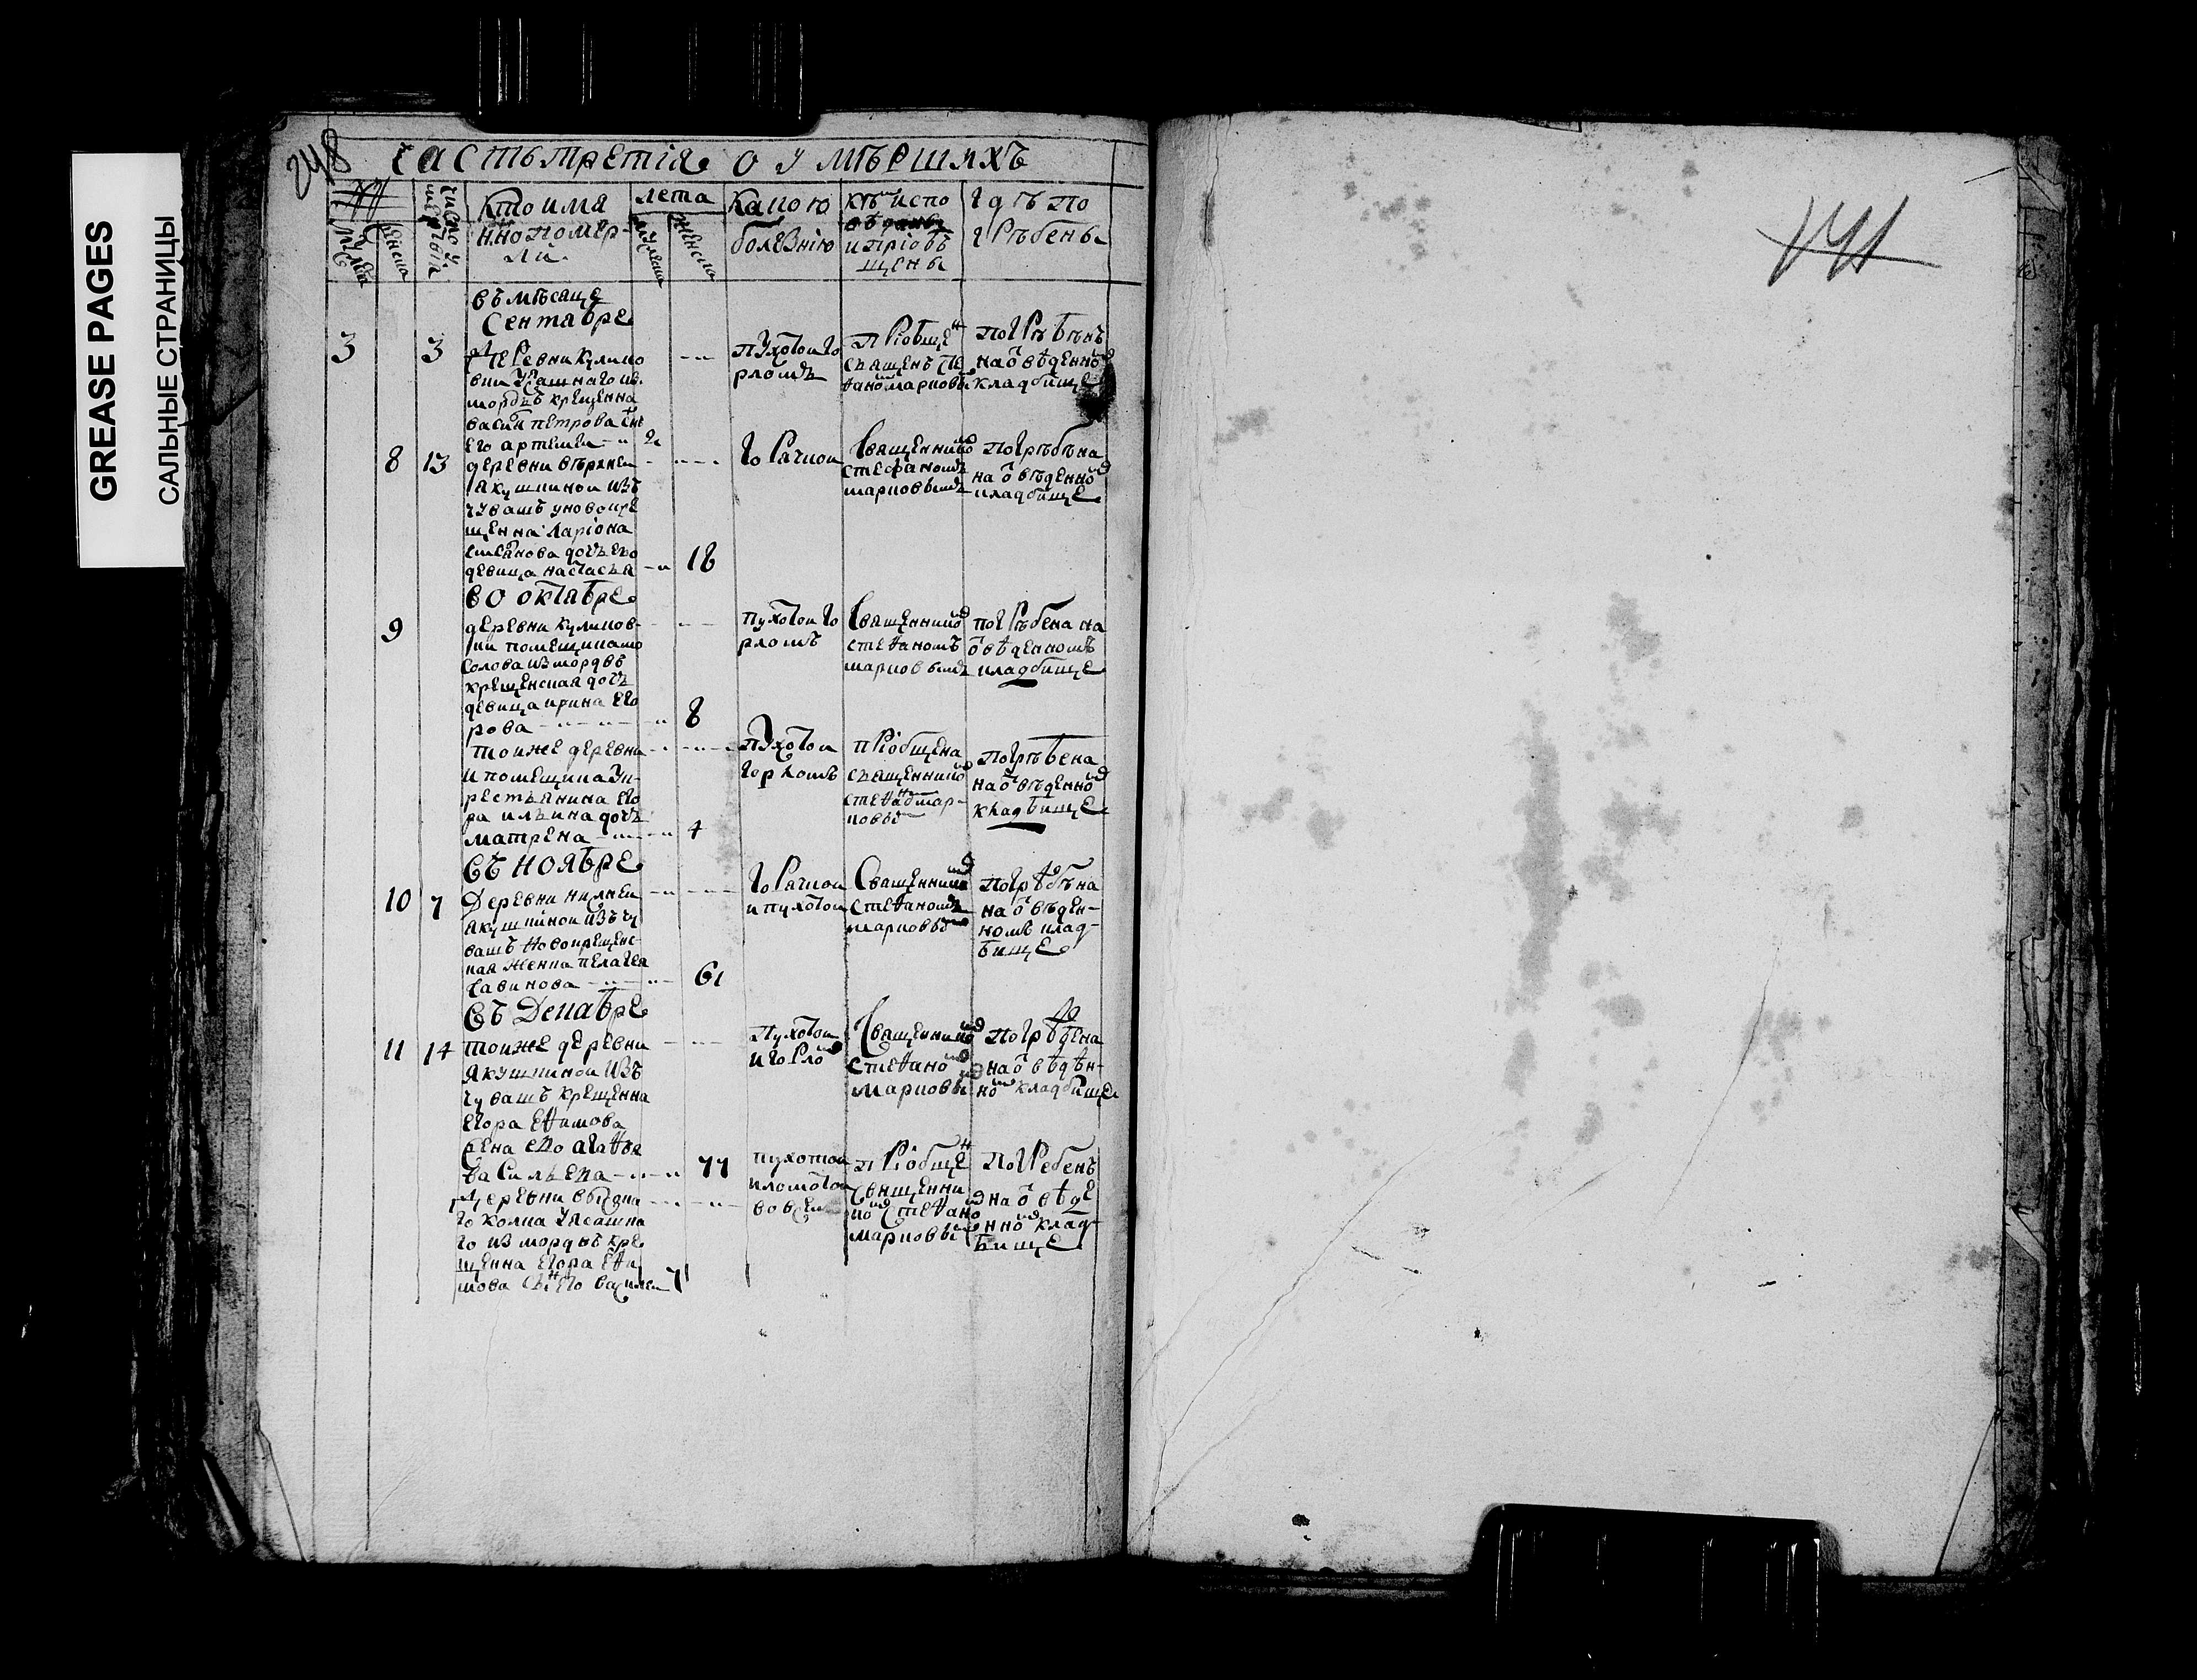 GREASE PAGES
САЛЬНЫЕ СТРАНИЦЫ
248
часть третія о умѣршихъ
кто имя
нно помер-
ли
лета
какою
болезнію
кѣм испо
вѣданы
и пріобъ
щены
гдѣ по
грѣбены
въ мѣсяце
Сентабре
3
3
Деревни кулико
вки
мордвъ крещенна
васил петрова сн
его артемеи 2
пухотои го
рломъ
пріобще н
священ сте
фаном марковы
погрѣбѣнъ
на о вѣденно м
кладбище
8
13
деревни вѣрхнеи
якушкинои изъ
чувашъ новокре
щенна ларіона
степанова дочь его
девица настасья
18
горячкои
священнико м
стефаномъ
марковымъ
погрѣбѣна
на о вѣденно м
кладбище
во октабре
9
деревни куликов-
ки помещика мо
солова из мордвъ
крещенская дочь
девица ирина его
рова
8
пухотои го
рломъ
священнико м
стефаномъ
марковымъ
погрѣбена на
о вѣденномъ
кладбище
тоиже деревни
и помещика у к-
рестьянина его
ра ильина дочь
матрена 4
пухотои
горломъ
пріобщена
священнико м
стефано м мар-
ковы м
погрѣбена
на о вѣденно м
кладбище
Съ ноябре
10
7
Деревни нижнеи
якушкинои изъ чу
вашъ новокрещенс-
кая женка пелагея
савинова
61
горячкои
и пухотои
священнико м
стефаномъ
марковы м
погрѣбѣна
на о вѣден-
номъ клад-
бище
Съ Декабре
11
14
тоиже деревни
якушкинои изъ
чувашъ крещенна
егора ефимова
жена ево агафья
васильева
77
пухотои
и горло м
священнико м
стефано м
марковы м
погрѣбена
на о вѣдѣн-
но м кладбище
деревни
го колка у ясашна
го из мордвъ кре
щенна егора ефи
мова сы н его василеи 71
пухотои
и ломотои
во всем
пріобще н
священни
ко м стефано м
марковы м
погребенъ
на о вѣде
нно м клад-
бище